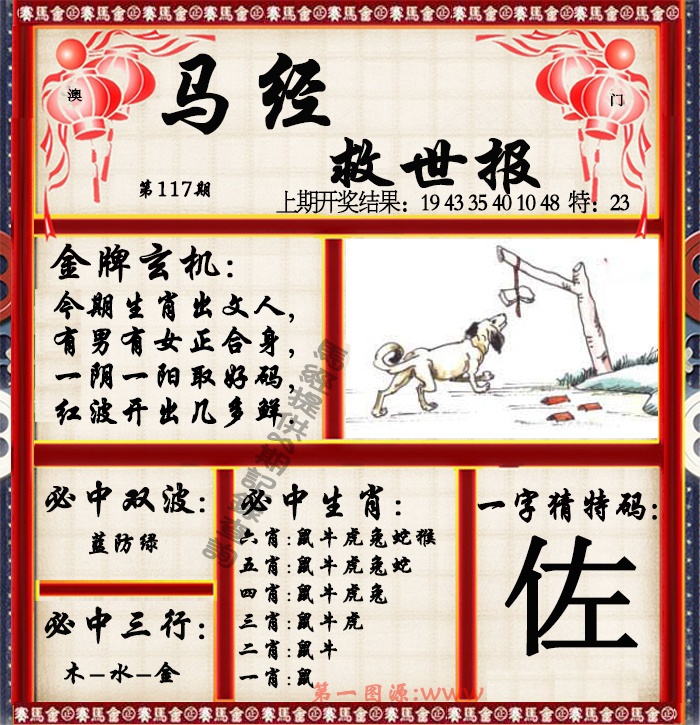 賽馬會正金賽馬會正金賽馬會正金賽馬會正金賽馬會正金賽馬會正金
澳
门
马经
救世报
第117期
上期开奖结果：19 43 35 40 10 48 特：23
金牌玄机：
今期生肖出文人，
有男有女正合身，
一阴一阳取好码，
红波开出几多鲜．
必中双波：
蓝防绿
必中三行：
木－水－金
必中生肖：
六肖：鼠牛虎兔蛇猴
五肖：鼠牛虎兔蛇
四肖：鼠牛虎兔
三肖：鼠牛虎
二肖：鼠牛
一肖：鼠
一字猜特码：
佐
第一图源:www